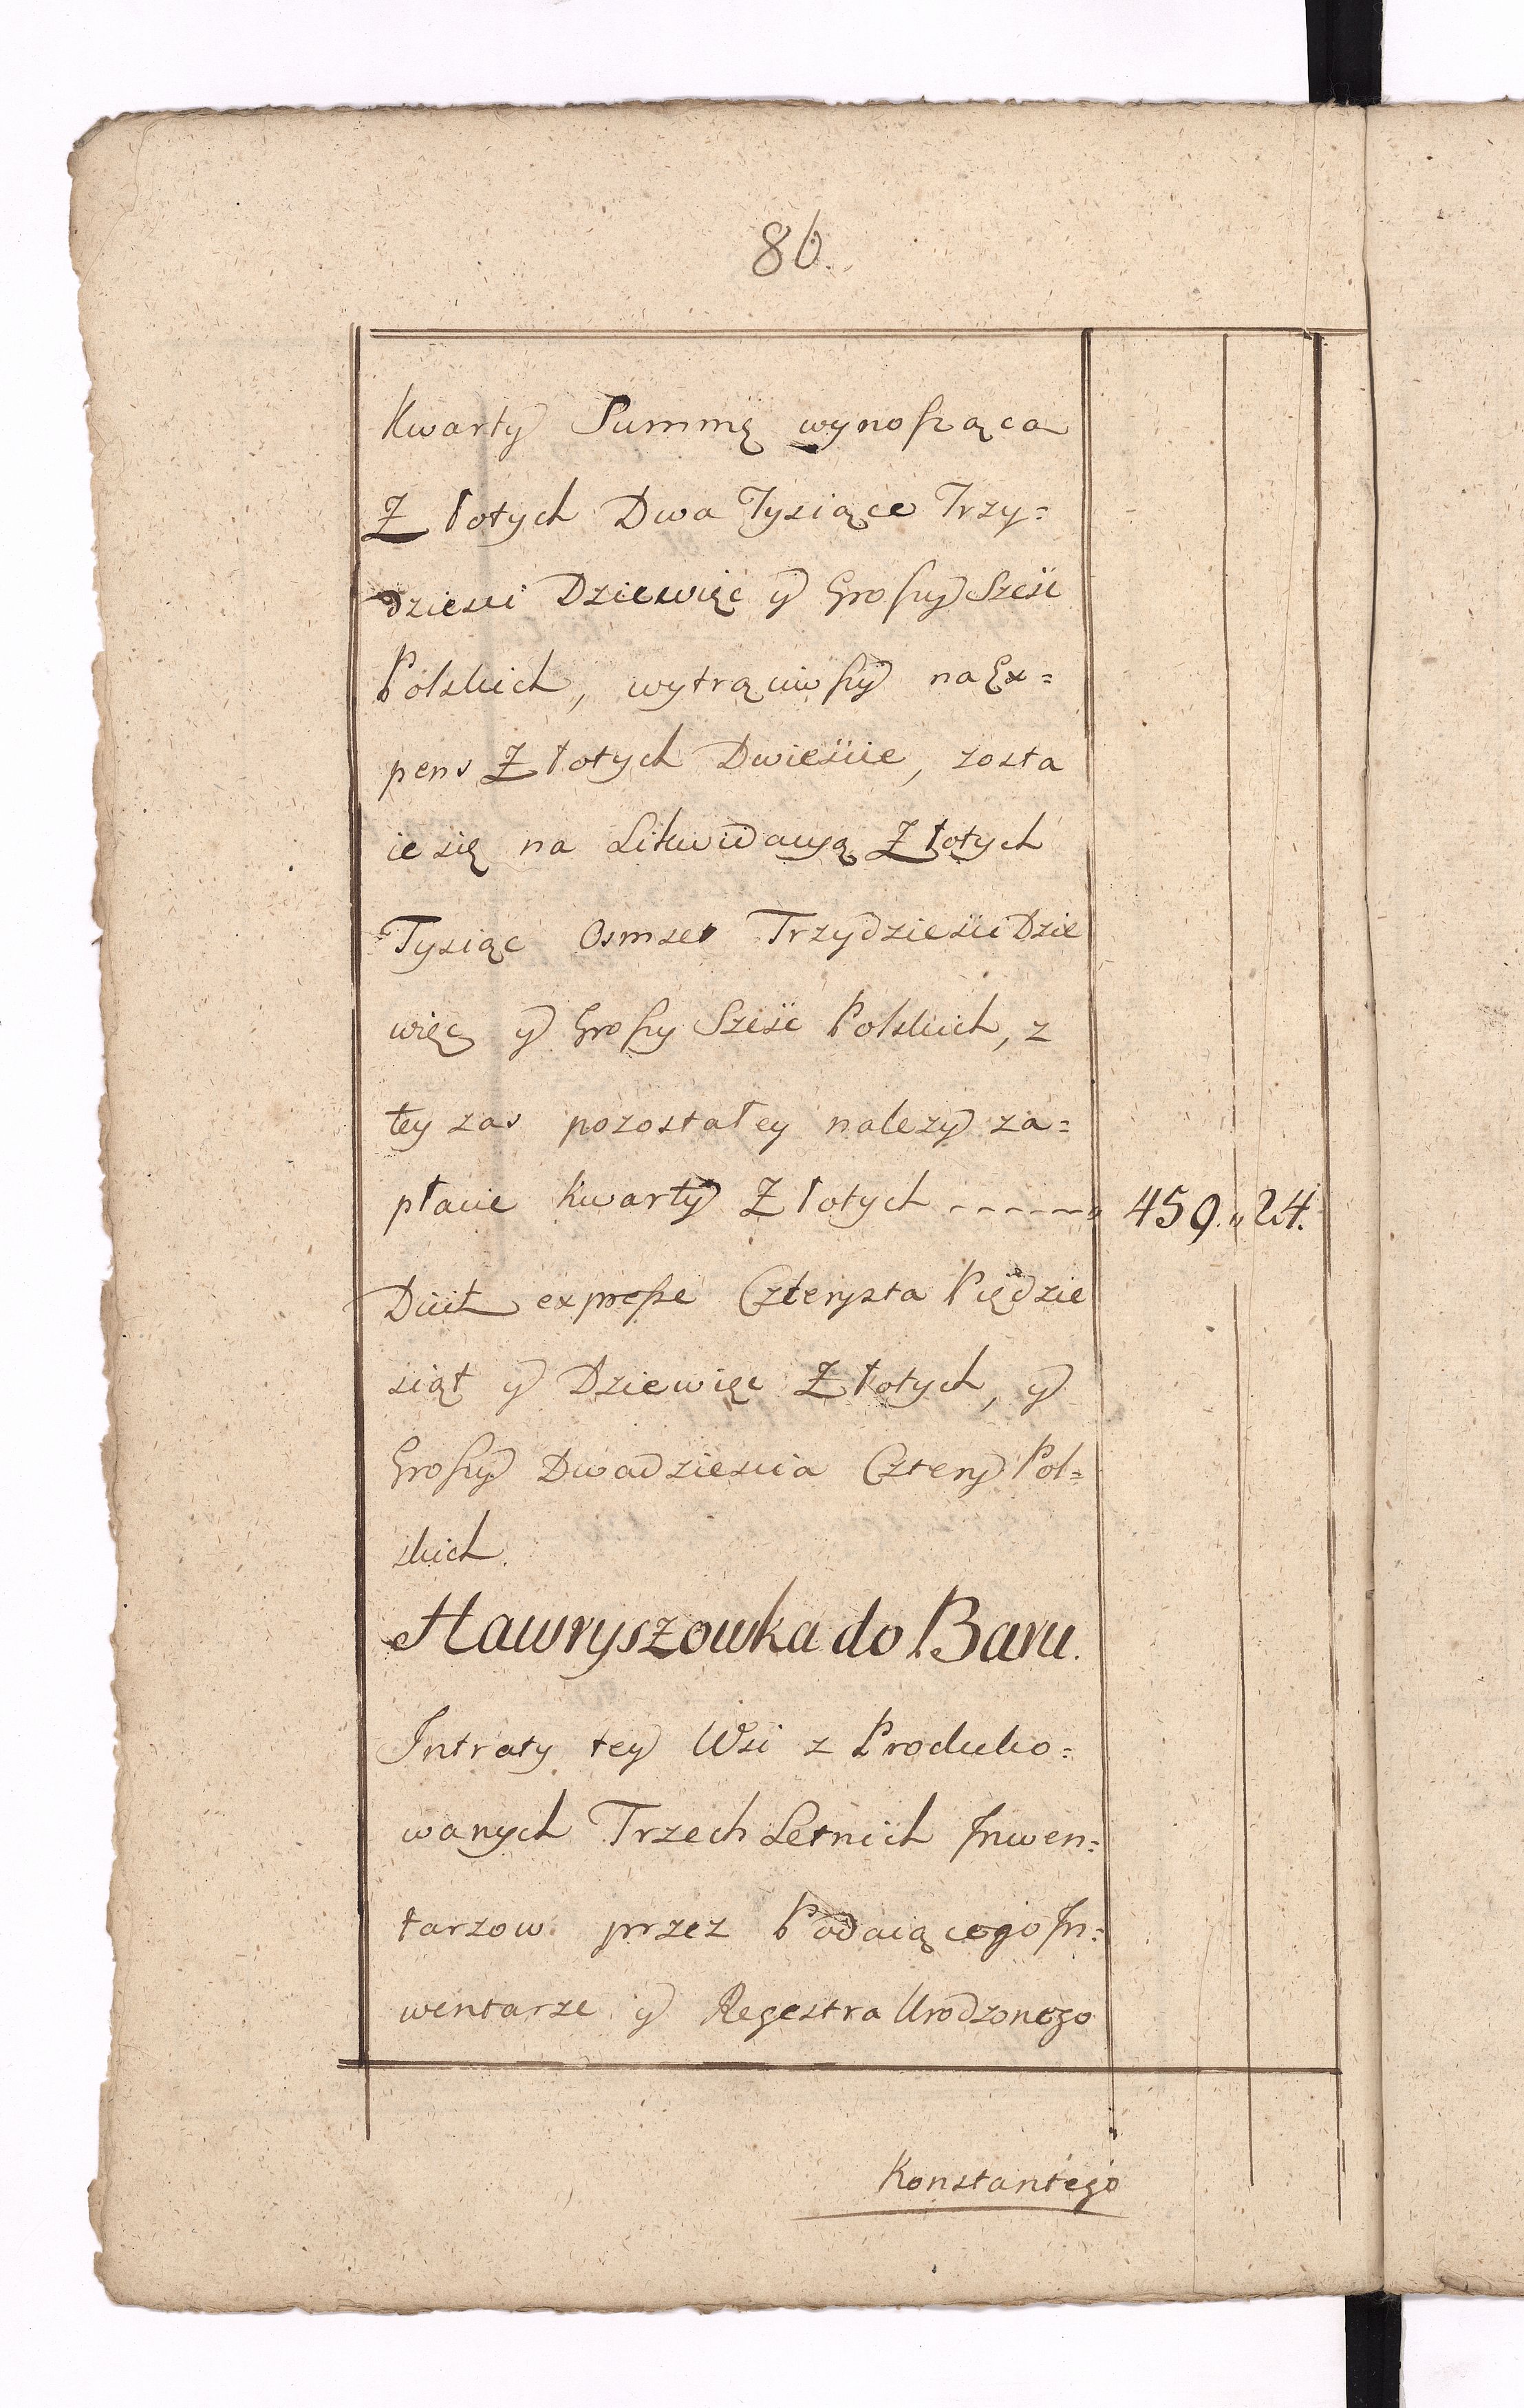 86.
Kwarty Summę wynoszącą
Złotych Dwa Tysiące Trzy=
dziesci Dziewięc y Groszy Szesc
Polskich, wytrąciwszy na Ex=
pens Złotych Dwiescie, zosta
ie się na Likwidacyą Złotych
Tysiąc Osmset Trzydziesci Dzie
więc y Groszy Szesc Polskich, z
tey zas pozostałey nalezy za=
płacic Kwarty Złotych ------ 459. „ 24.
Dicit expresse Czterysta Pięcdzie
siąt y Dziewięc Złotych, y
Groszy Dwadziescia Cztery Pol=
skich.
Hawryszowka do Baru.
Intraty tey Wsi z Produko=
wanych Trzech Letnich Inwen=
tarzow przez Podaiącego In=
wentarze y Regestra Urodzonego
Konstantego